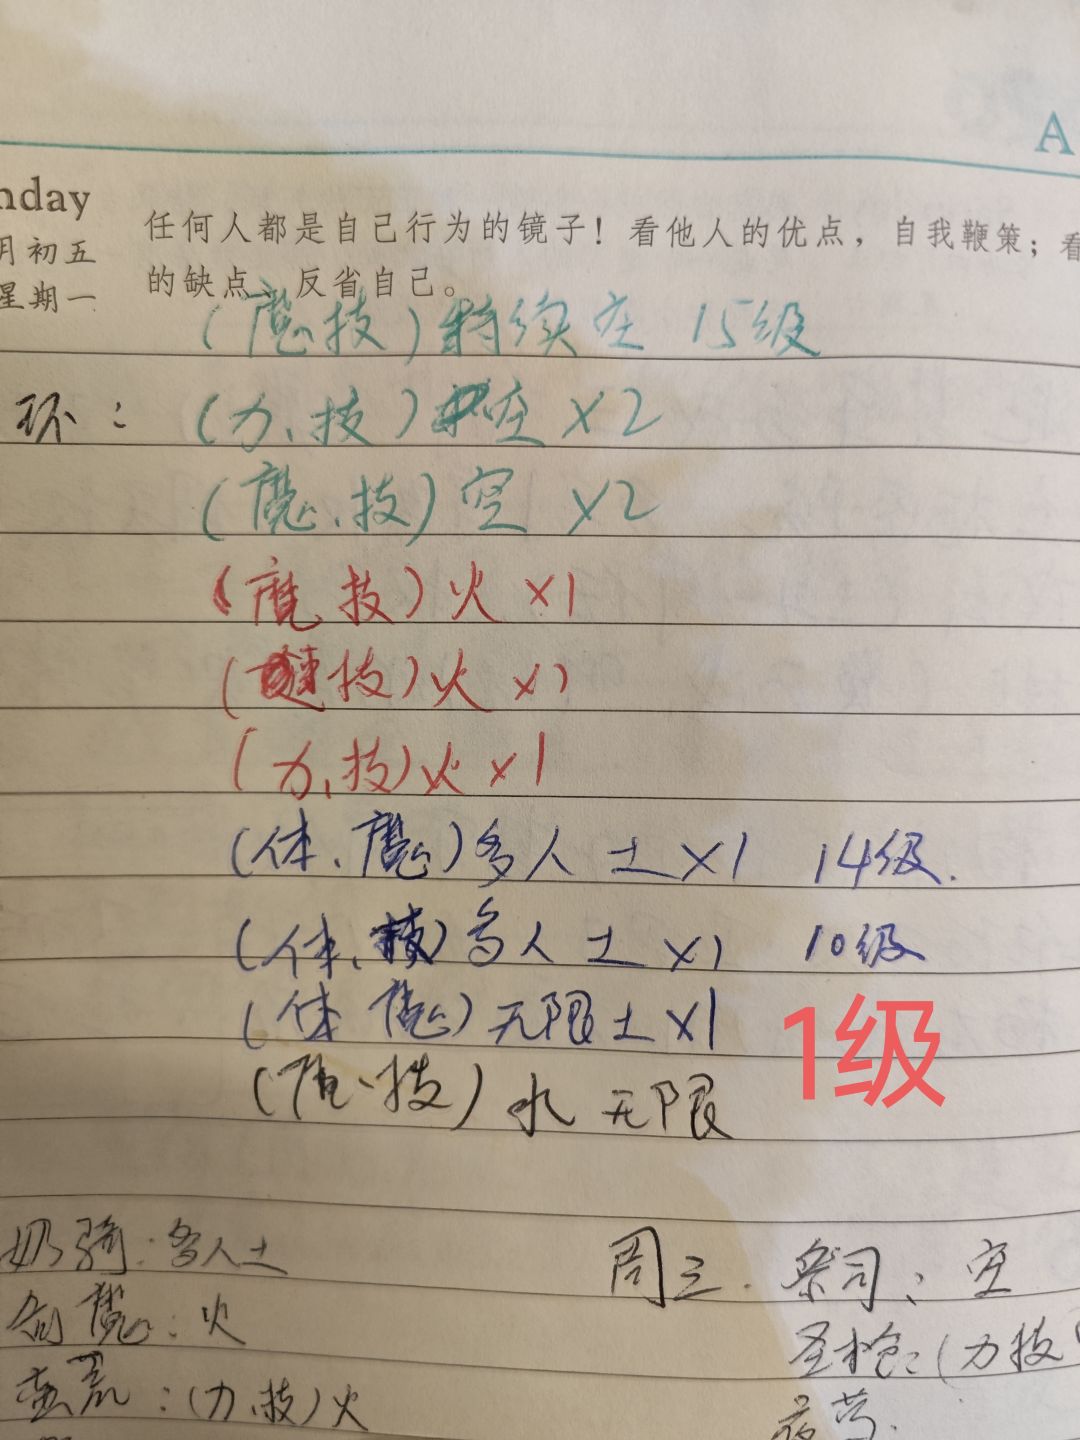 A
nday
月初五
星期一
任何人都是自己行为的镜子！看他人的优点，自我鞭策；看
的缺点，反省自己。
(魔技) 持续空 15级
环：(力、技) 空 ×2
(魔、技) 空 ×2
(魔技) 火 ×1
技) 火 ×1
(力、技) 火 ×1
(体、魔) 多人 土 ×1 14级.
(体、技) 多人 土 ×1 10级
(体 魔) 无限土 ×1
1级
(魔、技) 水 无限
奶骑：多人土
剑魔：火
蛮荒：(力、技) 火
周三. 祭司：空
圣枪：(力技